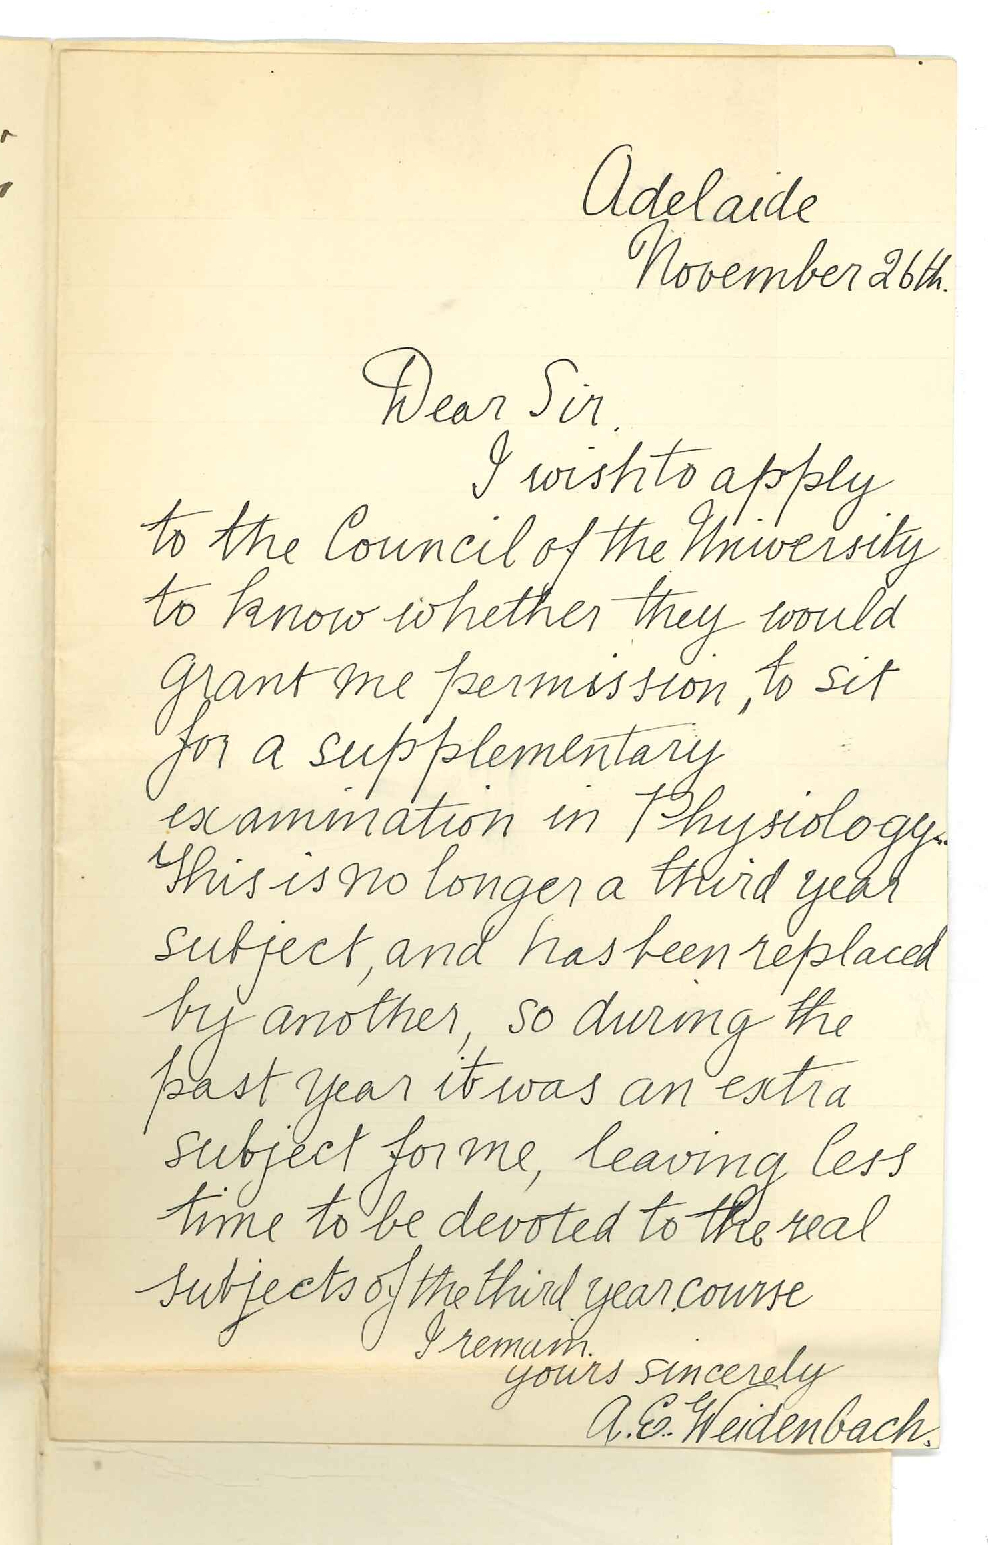 Adelaide
November 26th.
Dear Sir.
I wish to apply
to the Council of the University
to know whether they would
grant me permission, to sit
for a supplementary
examination in Physiology.
This is no longer a third year
subject, and has been replaced
by another, so during the
past year it was an extra
subject for me, leaving less
time to be devoted to the real
subjects of the third year course
I remain.
yours sincerely
A.E. Weidenbach.